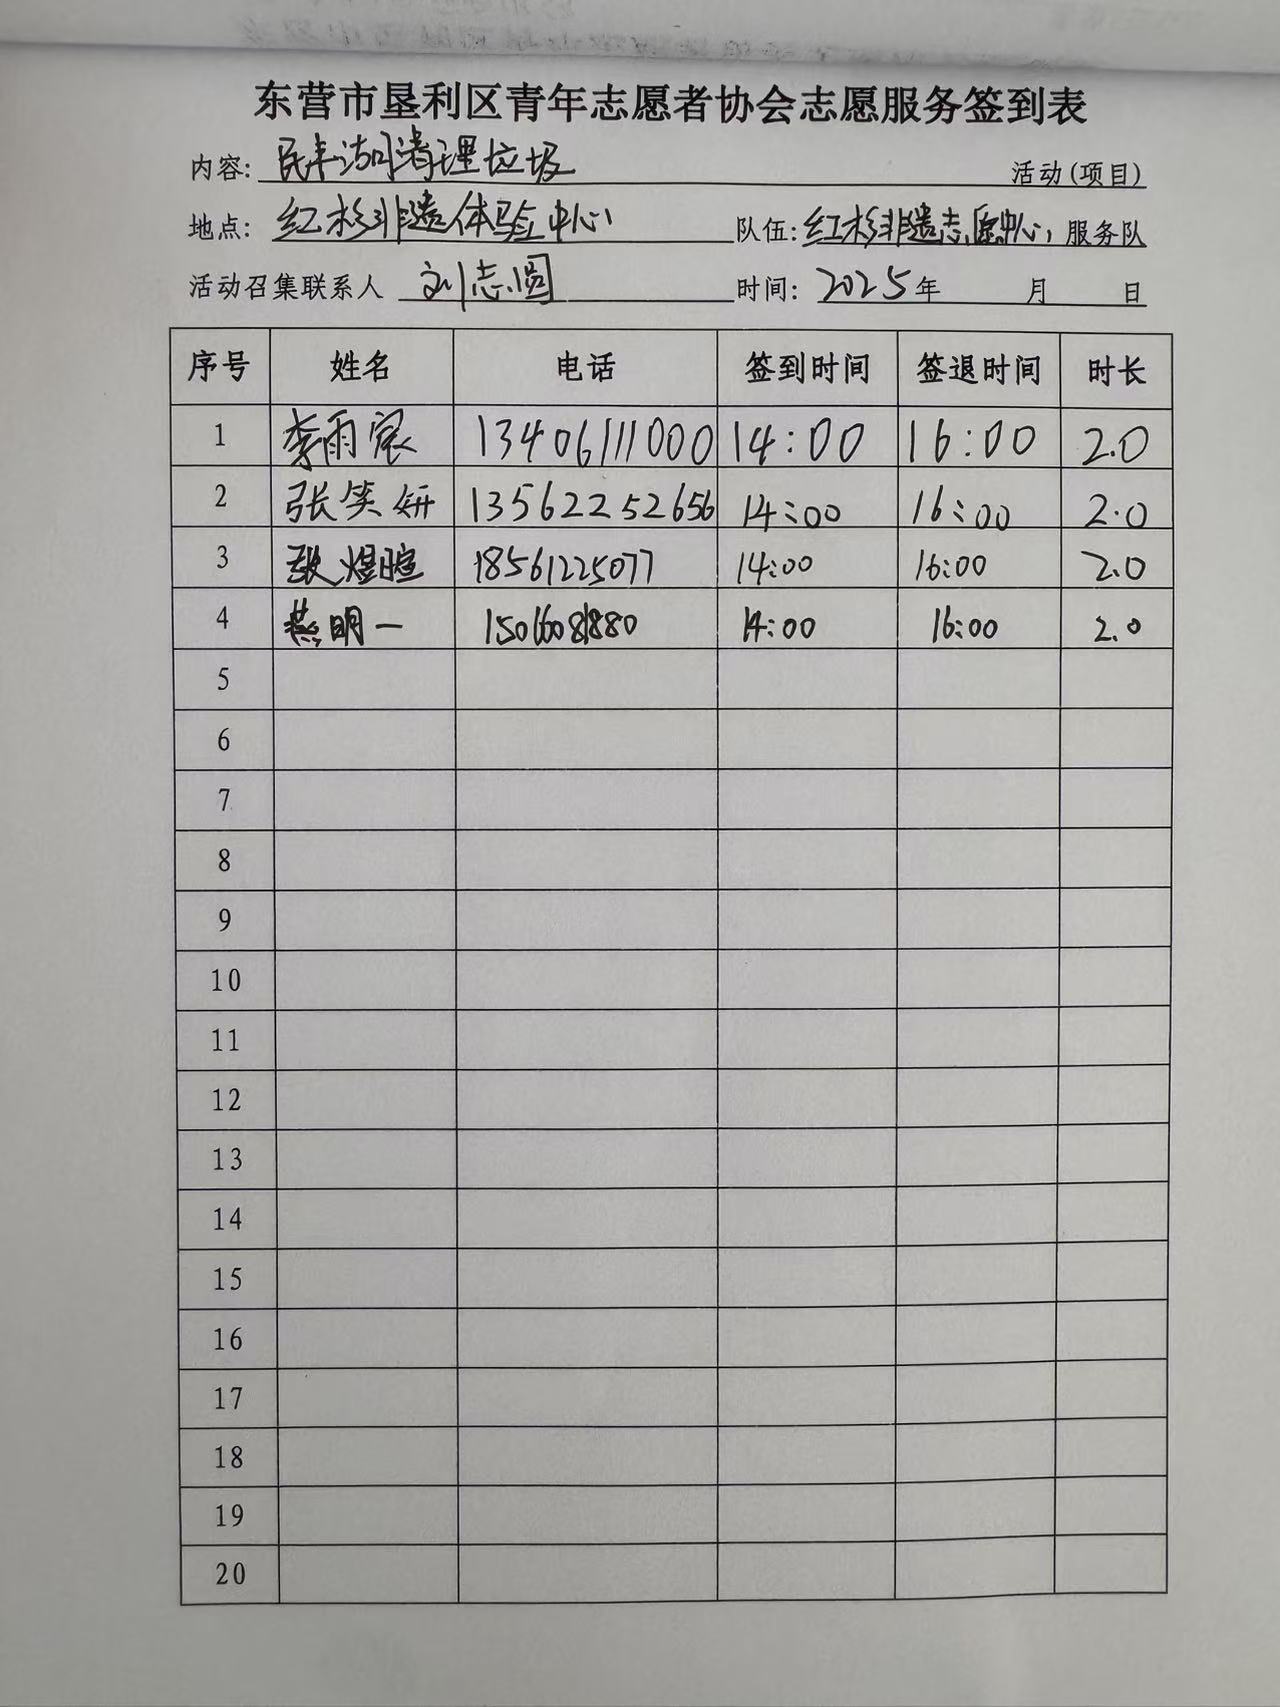 东营市垦利区青年志愿者协会志愿服务签到表
内容: 民丰湖清理垃圾 活动(项目)
地点: 红杉非遗体验中心 队伍: 红杉非遗志愿中心 服务队
活动召集联系人 刘志圆 时间: 2025年 月 日
序号 姓名 电话 签到时间 签退时间 时长
1 李雨宸 13406111000 14:00 16:00 2.0
2 张笑妍 13562252656 14:00 16:00 2.0
3 煜暄 18561225077 14:00 16:00 2.0
4 燕明一 14:00 16:00 2.0
5
6
7
8
9
10
11
12
13
14
15
16
17
18
19
20